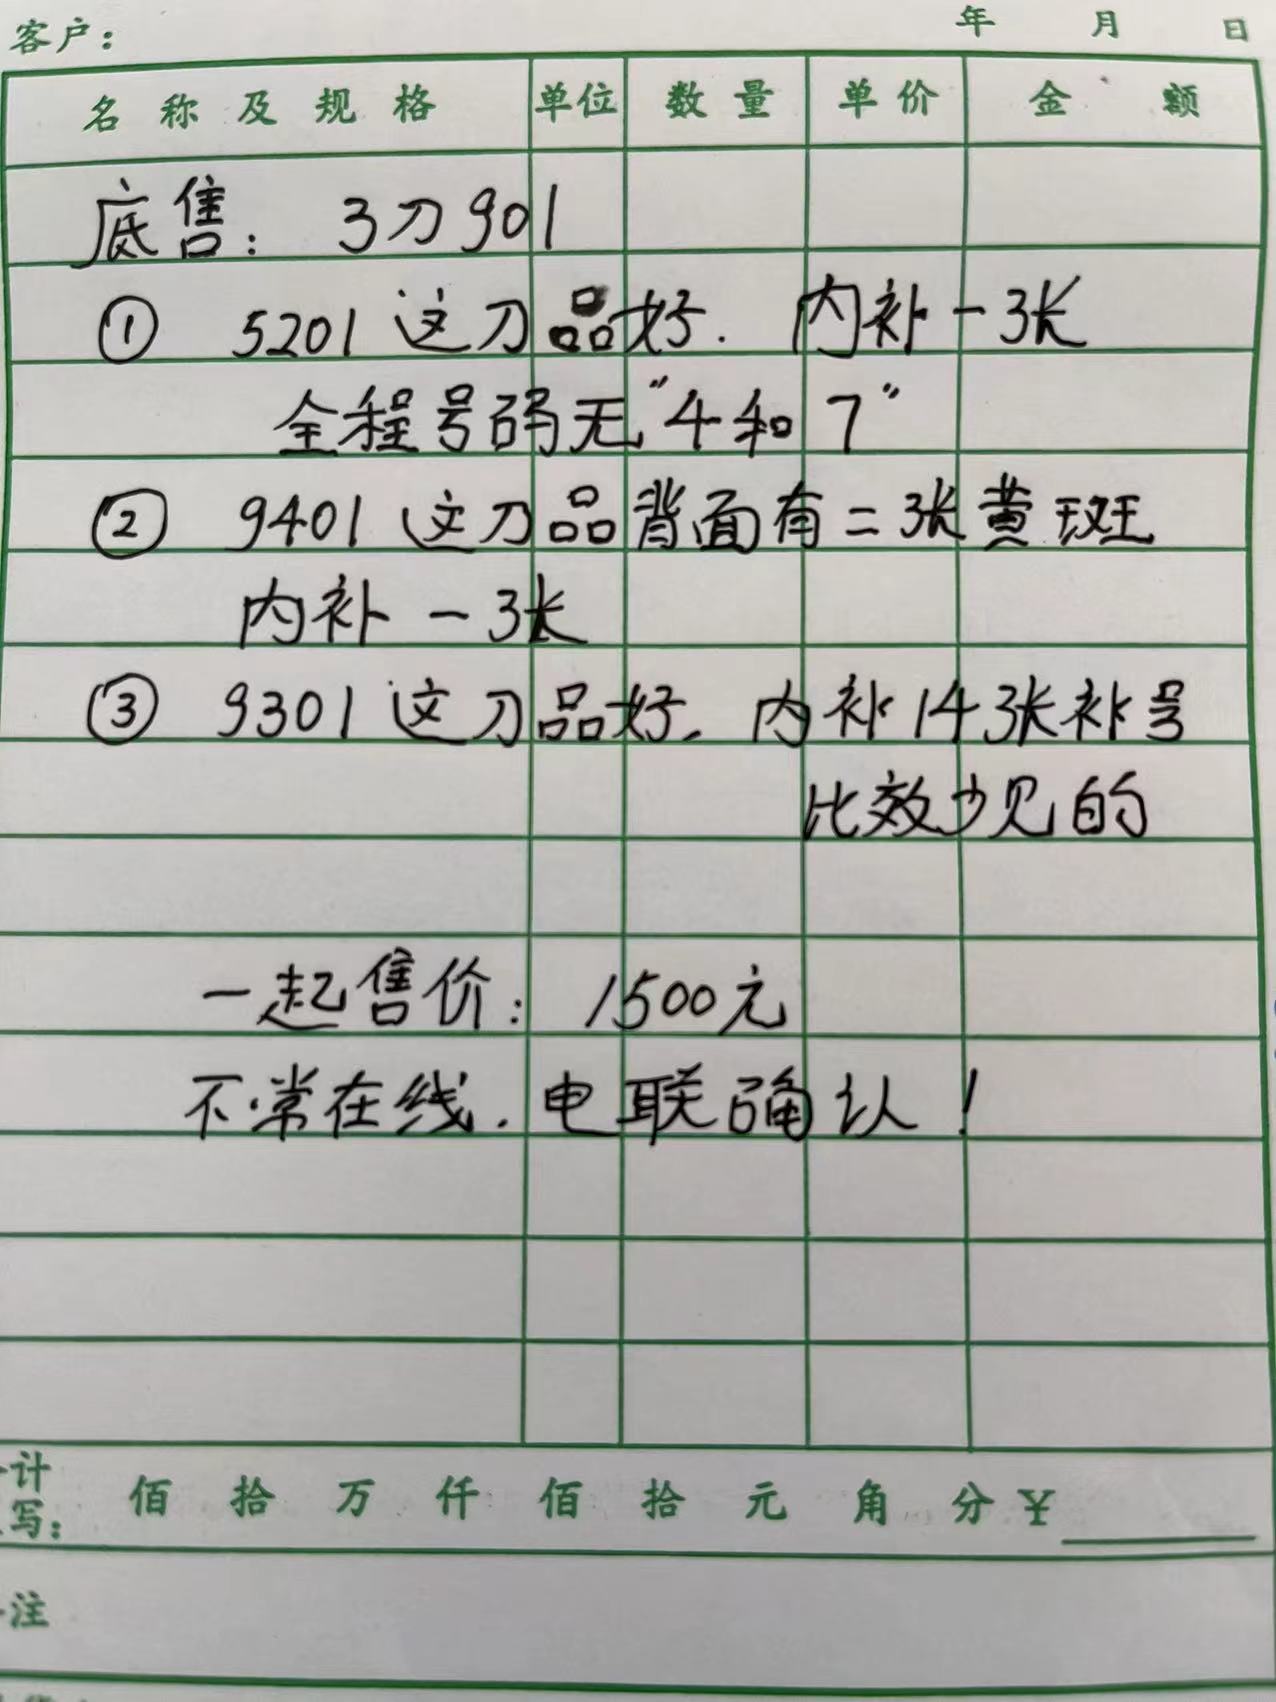 客户： 年 月 日
名称及规格 单位 数量 单价 金额
底售： 3刀901
① 5201这刀品好. 内补一3张
全程号码无"4和7"
② 9401这刀品背面有二张黄斑
内补一3张
③ 9301这刀品好. 内补14张补号
比效少见的
一起售价： 1500元
不常在线. 电联确认！
计
写： 佰 拾 万 仟 佰 拾 元 角 分 ¥
注